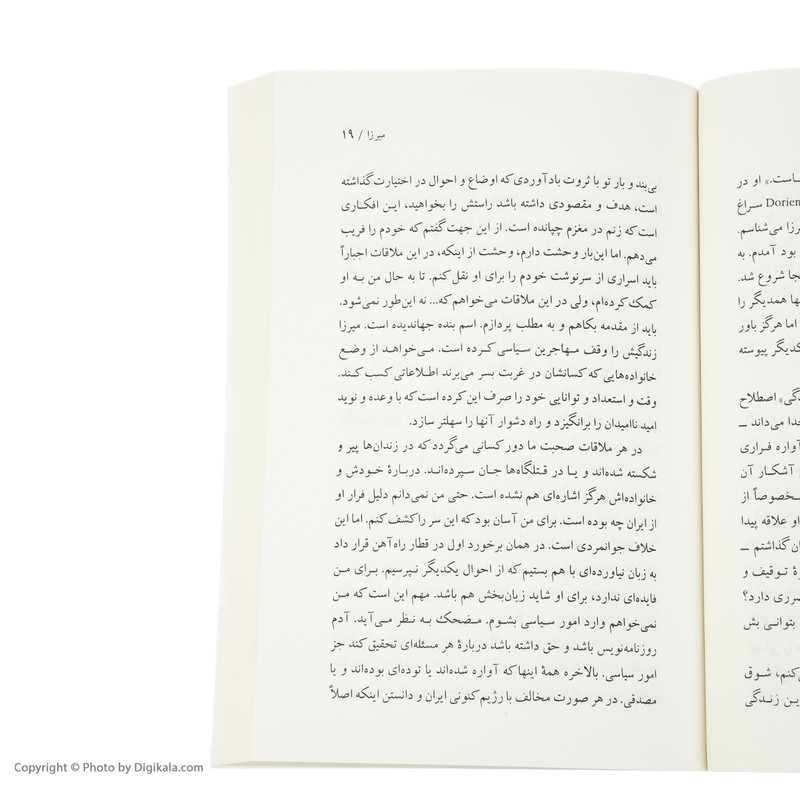 است.» او در
Dorien سراغ
می‌شناسم.
بود آمدم. به
شروع شد.
همدیگر را
اما هرگز باور
یکدیگر پیوسته
اصطلاح
می‌داند ـ
آواره فراری
آشکار آن
مخصوصاً از
او علاقه پیدا
گذاشتم ـ
توقیف و
ضرری دارد؟
بتوانی بش
شوق
این زندگی
میرزا / ۱۹
بی‌بند و بار تو با ثروت بادآوردی که اوضاع و احوال در اختیارت گذاشته
است، هدف و مقصودی داشته باشد راستش را بخواهید، این افکاری
است که زنم در مغزم چپانده است. از این جهت گفتم که خودم را فریب
می‌دهم. اما این‌بار وحشت دارم، وحشت از اینکه، در این ملاقات اجباراً
باید اسراری از سرنوشت خودم را برای او نقل کنم. تا به حال من به او
کمک کرده‌ام، ولی در این ملاقات می‌خواهم که... نه این‌طور نمی‌شود.
باید از مقدمه بکاهم و به مطلب پردازم. اسم بنده جهاندیده است. میرزا
زندگیش را وقف مهاجرین سیاسی کرده است. می‌خواهد از وضع
خانواده‌هایی که کسانشان در غربت بسر می‌برند اطلاعاتی کسب کند.
وقت و استعداد و توانایی خود را صرف این کرده است که با وعده و نوید
امید ناامیدان را برانگیزد و راه دشوار آنها را سهلتر سازد.
در هر ملاقات صحبت ما دور کسانی می‌گردد که در زندان‌ها پیر و
شکسته شده‌اند و یا در قتلگاه‌ها جان سپرده‌اند. دربارهٔ خودش و
خانواده‌اش هرگز اشاره‌ای هم نشده است. حتی من نمی‌دانم دلیل فرار او
از ایران چه بوده است. برای من آسان بود که این سر را کشف کنم. اما این
خلاف جوانمردی است. در همان برخورد اول در قطار راه‌آهن قرار داد
به زبان نیاورده‌ای با هم بستیم که از احوال یکدیگر نپرسیم. برای من
فایده‌ای ندارد، برای او شاید زیان‌بخش هم باشد. مهم این است که من
نمی‌خواهم وارد امور سیاسی بشوم. مضحک به نظر می‌آید. آدم
روزنامه‌نویس باشد و حق داشته باشد دربارهٔ هر مسئله‌ای تحقیق کند جز
امور سیاسی. بالاخره همهٔ اینها که آواره شده‌اند یا توده‌ای بوده‌اند و یا
مصدقی. در هر صورت مخالف با رژیم کنونی ایران و دانستن اینکه اصلاً
Copyright © Photo by Digikala.com